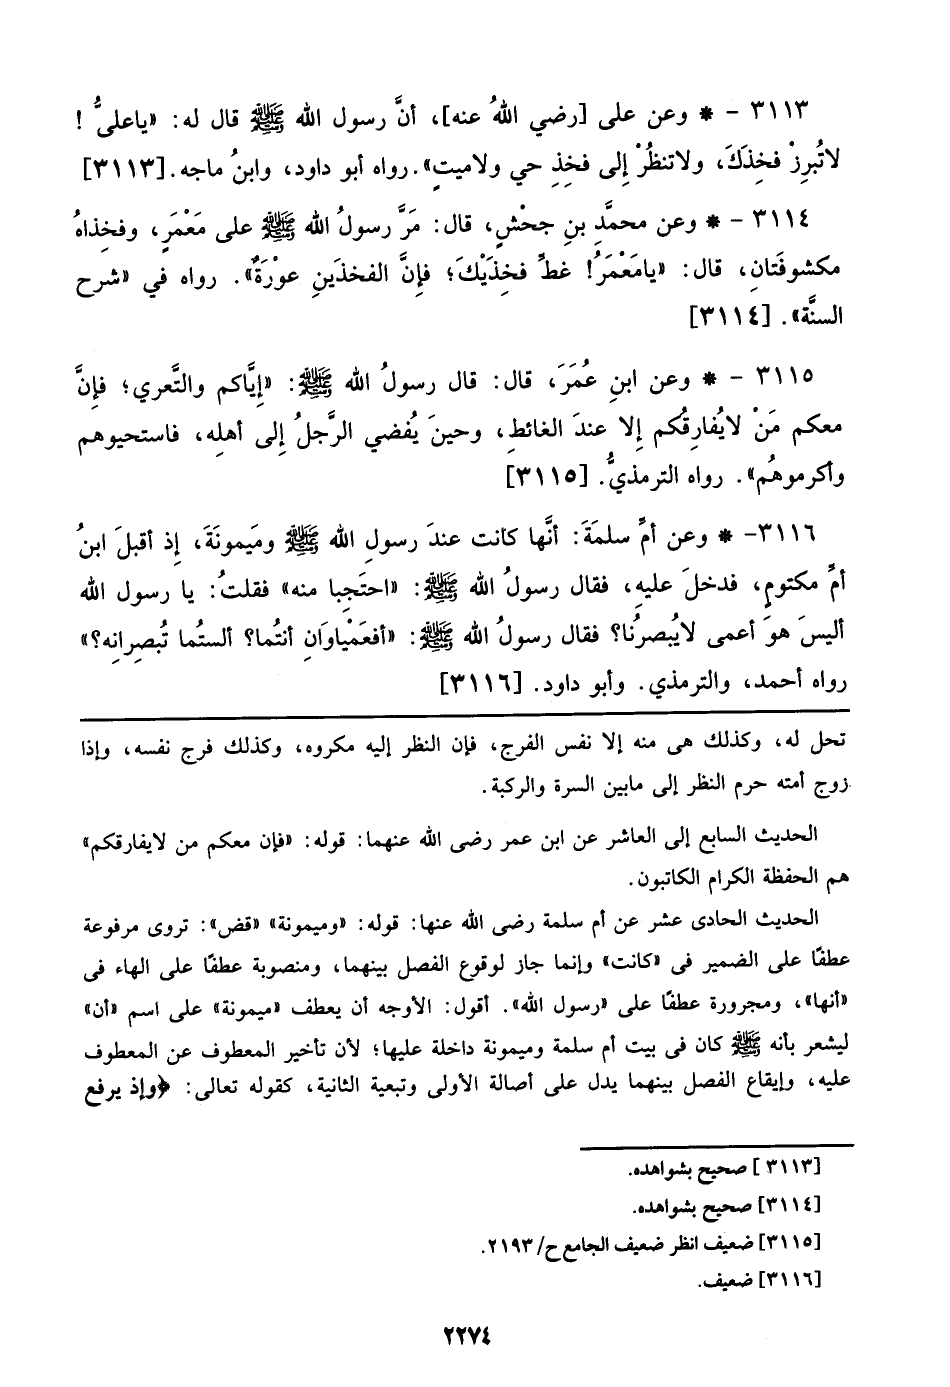 ٣١١٣ – * وعن على [رضي اللهُ عنه]، أنَّ رسول الله ﷺ قال له: «ياعلىُّ !
لاتُبرِزْ فخِذَكَ، ولاتنظُرْ إِلى فخِذِ حي ولاميتٍ». رواه أبو داود، وابنُ ماجه. [٣١١٣]
٣١١٤ – * وعن محمَّدِ بنِ جحْشٍ، قال: مَرَّ رسولُ الله ﷺ على مَعْمَرٍ، وفخِذاهُ
مكشوفَتانِ، قال: «يامَعْمَرُ! غطِّ فخِذَيْكَ؛ فإنَّ الفخذَينِ عوْرَةٌ». رواه في «شرح
السنَّة». [٣١١٤]
٣١١٥ – * وعن ابنِ عُمَرَ، قال: قال رسولُ الله ﷺ: «إِيَّاكم والتَّعري؛ فإنَّ
معكم مَنْ لايُفارِقُكم إلا عندَ الغائطِ، وحينَ يُفضي الرَّجلُ إِلى أهلِه، فاستحيوهم
وأكرموهُم». رواه الترمذيُّ. [٣١١٥]
٣١١٦– * وعن أمِّ سلمَةَ: أنَّها كانت عندَ رسولِ الله ﷺ وميمونَةَ، إِذ أقبلَ ابنُ
أمِّ مكتومٍ، فدخلَ عليهِ، فقال رسولُ الله ﷺ: «احتَجِبا منه» فقلتُ: يا رسول الله
أليسَ هوَ أعمى لايُبصرُنا؟ فقال رسولُ الله ﷺ: «أفعَمْياوَانِ أنتُما؟ ألستُما تُبصِرانِه؟»
رواه أحمد، والترمذي. وأبو داود. [٣١١٦]
تحل له، وكذلك هى منه إلا نفس الفرج، فإن النظر إليه مكروه، وكذلك فرج نفسه، وإذا
زوج أمته حرم النظر إلى مابين السرة والركبة.
الحديث السابع إلى العاشر عن ابن عمر رضى الله عنهما: قوله: «فإن معكم من لايفارقكم»
هم الحفظة الكرام الكاتبون.
الحديث الحادى عشر عن أم سلمة رضى الله عنها: قوله: «وميمونة» «قض»: تروى مرفوعة
عطفًا على الضمير فى «كانت» وإنما جاز لوقوع الفصل بينهما، ومنصوبة عطفًا على الهاء فى
«أنها»، ومجرورة عطفًا على «رسول الله». أقول: الأوجه أن يعطف «ميمونة» على اسم «أن»
ليشعر بأنه ﷺ كان فى بيت أم سلمة وميمونة داخلة عليها؛ لأن تأخير المعطوف عن المعطوف
عليه، وإيقاع الفصل بينهما يدل على أصالة الأولى وتبعية الثانية، كقوله تعالى: ﴿وإذ يرفع
[٣١١٣ ] صحيح بشواهده.
[٣١١٤] صحيح بشواهده.
[٣١١٥] ضعيف انظر ضعيف الجامع ح/ ٢١٩٣.
[٣١١٦] ضعيف.
٢٢٧٤